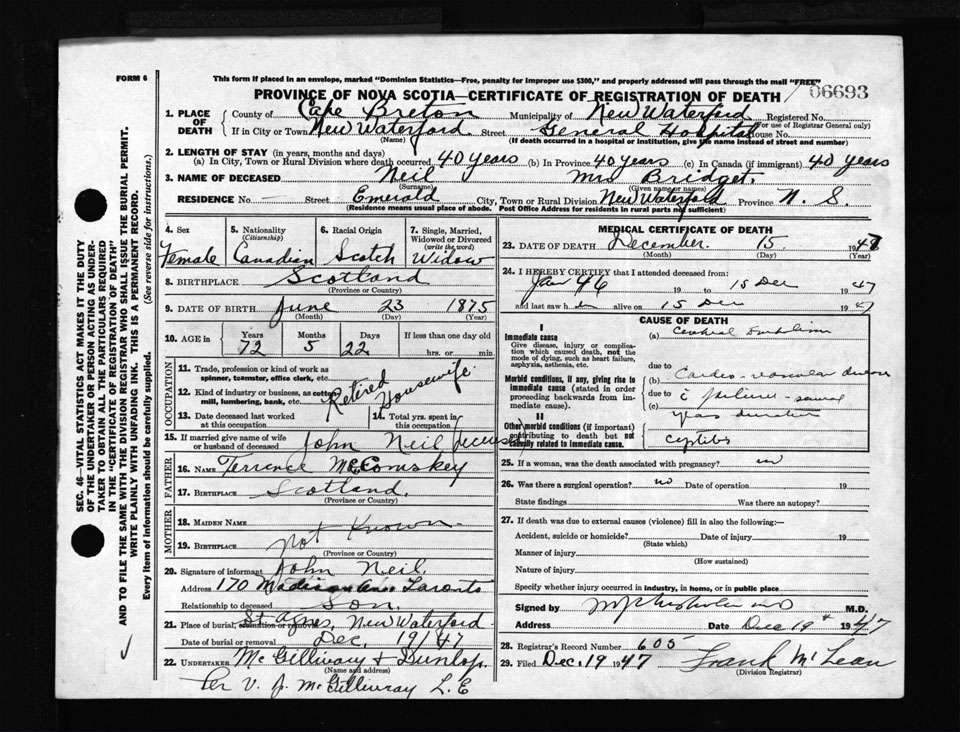 FORM 6
This form if placed in an envelope, marked "Dominion Statistics—Free, penalty for improper use $300," and properly addressed will pass through the mail "FREE"
PROVINCE OF NOVA SCOTIA—CERTIFICATE OF REGISTRATION OF DEATH / 06693
SEC. 46—VITAL STATISTICS ACT MAKES IT THE DUTY
OF THE UNDERTAKER OR PERSON ACTING AS UNDER-
TAKER TO OBTAIN ALL THE PARTICULARS REQUIRED
IN THE "CERTIFICATE OF REGISTRATION OF DEATH"
AND TO FILE THE SAME WITH THE DIVISION REGISTRAR WHO SHALL ISSUE THE BURIAL PERMIT.
WRITE PLAINLY WITH UNFADING INK. THIS IS A PERMANENT RECORD.
Every item of information should be carefully supplied. (See reverse side for instructions.)
1. PLACE OF DEATH
County of Cape Breton Municipality of New Waterford Registered No.
(For use of Registrar General only)
If in City or Town New Waterford Street General Hospital House No.
(Name) (If death occurred in a hospital or institution, give the name instead of street and number)
2. LENGTH OF STAY (in years, months and days)
(a) In City, Town or Rural Division where death occurred 40 years (b) In Province 40 years (c) In Canada (if immigrant) 40 years
3. NAME OF DECEASED Neil Mrs Bridget.
(Surname) (Given name or names)
RESIDENCE No. — Street Emerald City, Town or Rural Division New Waterford Province N. S.
(Residence means usual place of abode. Post Office Address for residents in rural parts not sufficient)
4. Sex Female
5. Nationality (Citizenship) Canadian
6. Racial Origin Scotch
7. Single, Married, Widowed or Divorced (write the word) Widow
8. BIRTHPLACE Scotland
(Province or Country)
9. DATE OF BIRTH June 23 1875
(Month) (Day) (Year)
10. AGE in Years 72 Months 5 Days 22 If less than one day old hrs. or min.
OCCUPATION
11. Trade, profession or kind of work as spinner, teamster, office clerk, etc.
12. Kind of industry or business, as cotton mill, lumbering, bank, etc.
Retired Housewife
13. Date deceased last worked at this occupation
14. Total yrs. spent in this occupation
15. If married give name of wife or husband of deceased John Neil (deceased)
FATHER
16. NAME Terrence McComskey
17. BIRTHPLACE Scotland.
MOTHER
18. MAIDEN NAME
19. BIRTHPLACE
not Known
(Province or Country)
20. Signature of informant John Neil
Address 170 Madison Toronto
Relationship to deceased Son.
21. Place of burial, cremation or removal St Agnes, New Waterford
Date of burial or removal Dec. 19/47
22. UNDERTAKER McGillivary & Dunlop.
(Name and address)
Per V. J. McGillivray L. E
MEDICAL CERTIFICATE OF DEATH
23. DATE OF DEATH December 15 1947
(Month) (Day) (Year)
24. I HEREBY CERTIFY that I attended deceased from:
Jan 46 19 to 15 Dec 1947
and last saw h alive on 15 Dec 1947
CAUSE OF DEATH
I
Immediate cause
Give disease, injury or complication which caused death, not the mode of dying, such as heart failure, asphyxia, asthenia, etc.
(a) Cerebral Embolism
due to
Morbid conditions, if any, giving rise to immediate cause (stated in order proceeding backwards from immediate cause).
(b) Cardio-vascular disease
due to c̄ failure - several
(c) years duration
II
Other morbid conditions (if important) contributing to death but not causally related to immediate cause.
cystitis
25. If a woman, was the death associated with pregnancy? no
26. Was there a surgical operation? no Date of operation 19
State findings Was there an autopsy?
27. If death was due to external causes (violence) fill in also the following:—
Accident, suicide or homicide? Date of injury 19
(State which)
Manner of injury
(How sustained)
Nature of injury
Specify whether injury occurred in industry, in home, or in public place
Signed by M.D.
Address Date Dec 19th 1947
28. Registrar's Record Number 605
29. Filed Dec. 19 1947 Frank McLean
(Division Registrar)